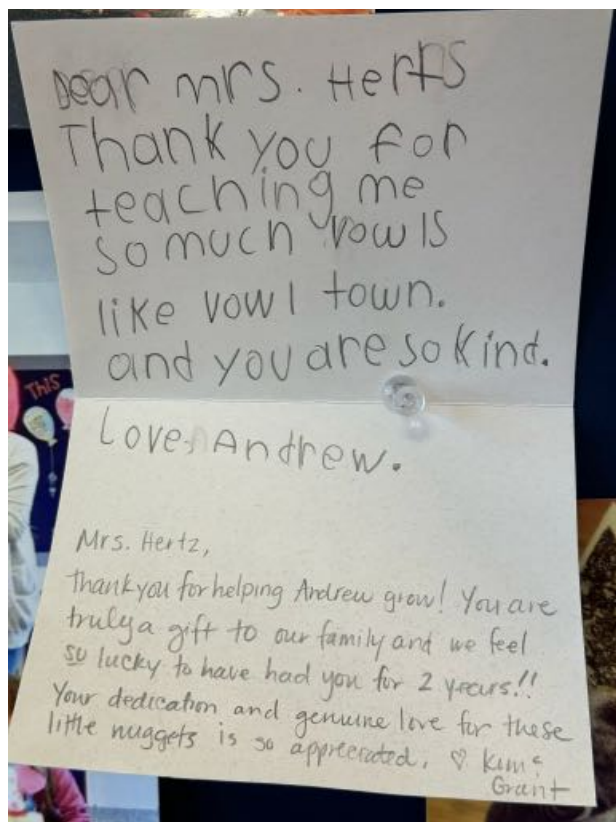 Dear mrs. Herts
Thank you for
teaching me
so much vowls
like vowl town.
and you are so kind.
Love, Andrew.
Mrs. Hertz,
Thank you for helping Andrew grow! You are
truly a gift to our family and we feel
so lucky to have had you for 2 years!!
Your dedication and genuine love for these
little nuggets is so appreciated. ♡ Kim &
Grant
This